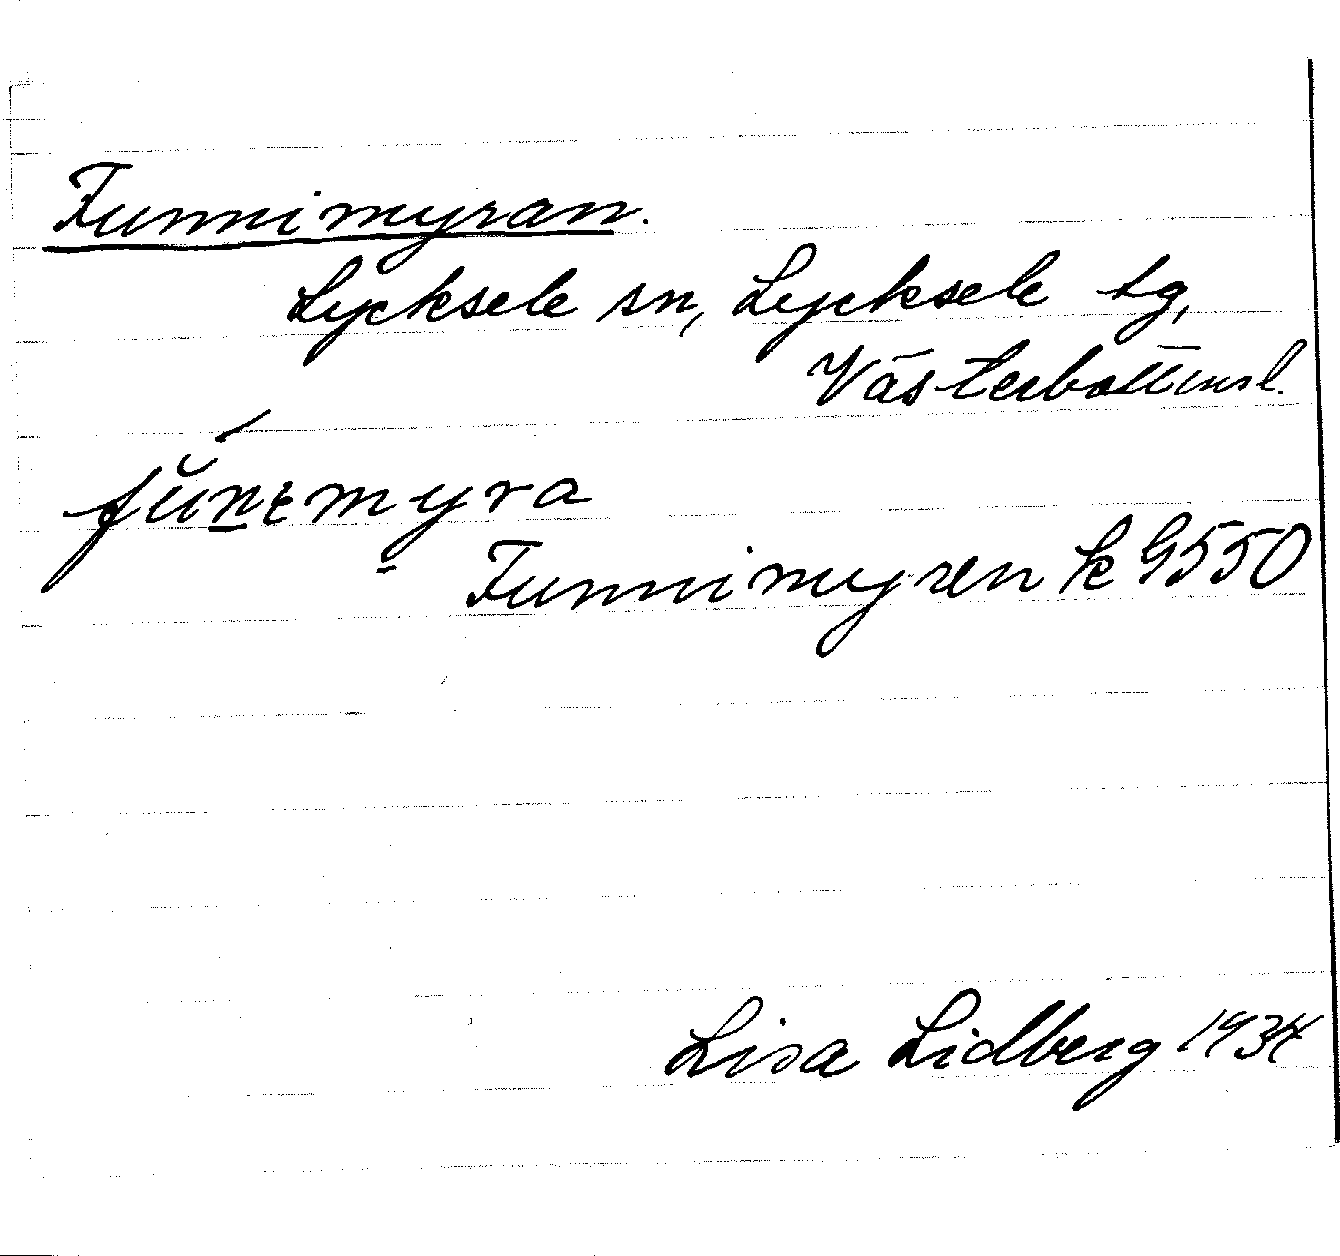 Funnimyran.
Lycksele sn, Lycksele tg,
Västerbottensl.
fŭnɛmyra
Funnimyren k G550
Lisa Lidberg 1934